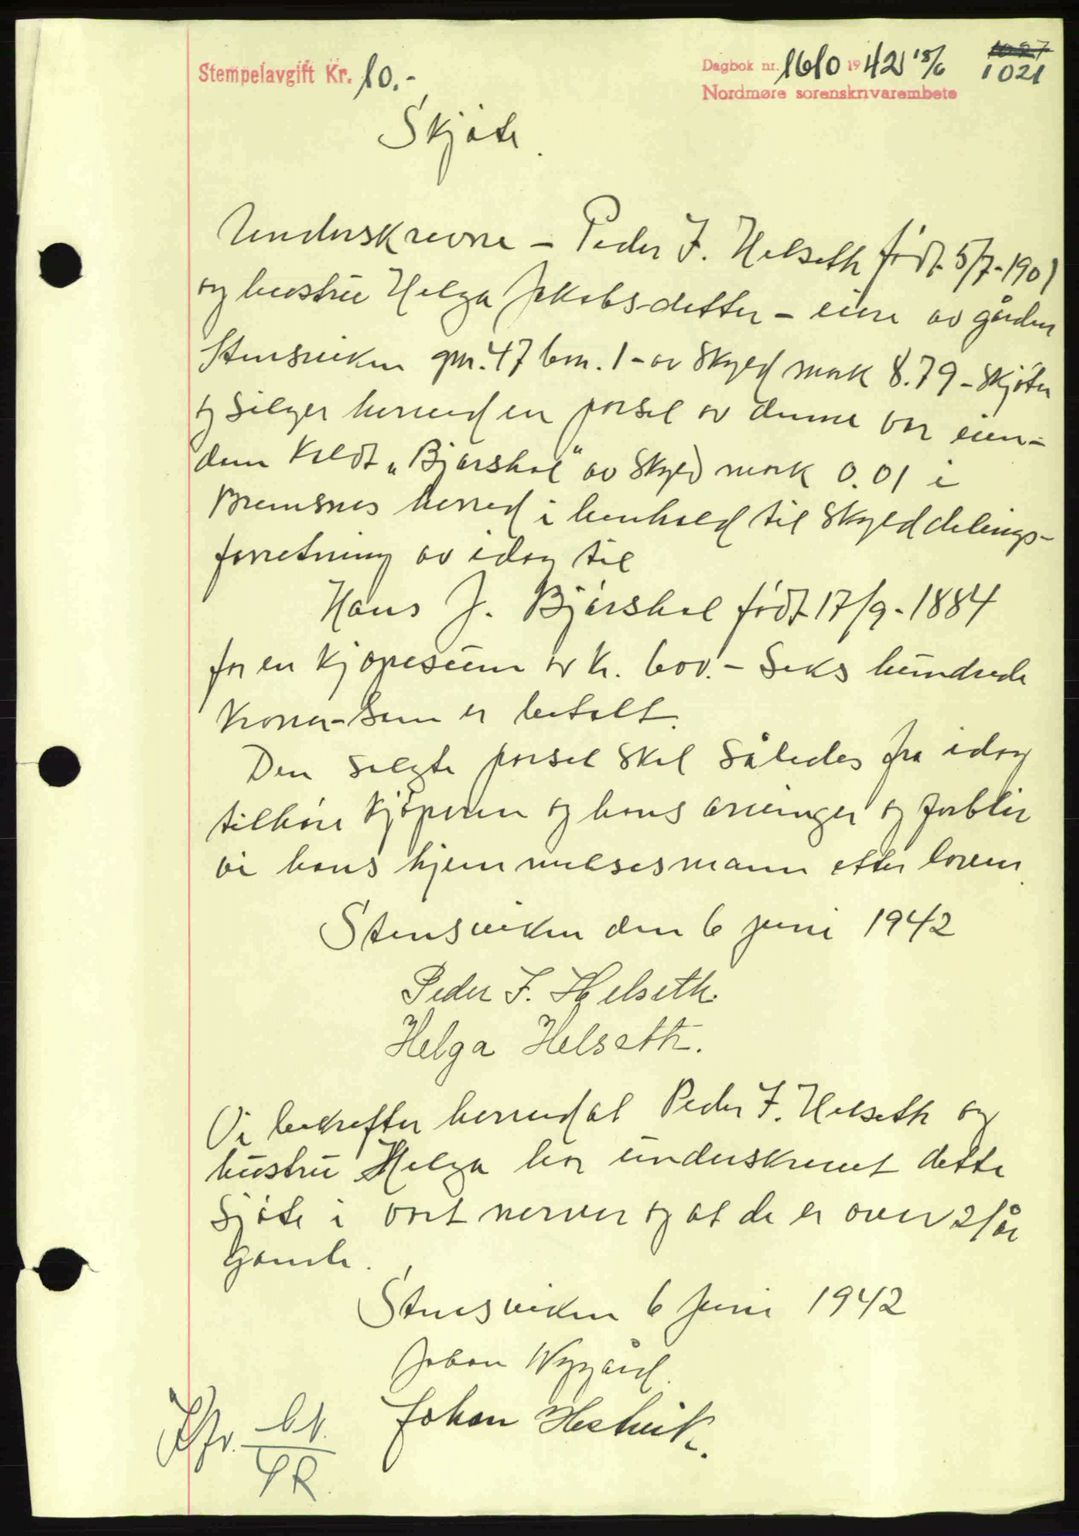 Stempelavgift Kr. 10.-
Dagbok nr. 1610 1942 15/6
Nordmøre sorenskrivarembete
1021
Skjøte.
Underskrevne - Peder F. Helseth født 5/7-1901
og hustru Helga Jakobsdatter - eiere av gården
Stensviken gnr. 47 bnr. 1 - av skyld mark 8.79 - skjøter
og selger herved en parsel av denne vor eien-
dom kaldt „Bjørshol" av skyld mark 0.01 i
Bremsnes herred i henhold til skylddelings-
forretning av idag til
Hans J. Bjørshol født 17/9-1884
for en kjøpesum av kr. 600.- Seks hundrede
kroner - som er betalt.
Den solgte parsel skal således fra idag
tilhøre kjøperen og hans arvinger og forblir
vi hans hjemmelsesmann etter loven.
Stensviken den 6 juni 1942
Peder F. Helseth.
Helga Helseth.
Vi bekrefter herved at Peder F. Helseth og
hustru Helga har underskrevet dette
sjøte i vort nerver og at de er over 21 år
gamle.
Stensviken 6 juni 1942
Johan Nygård.
Johan Hestvik.